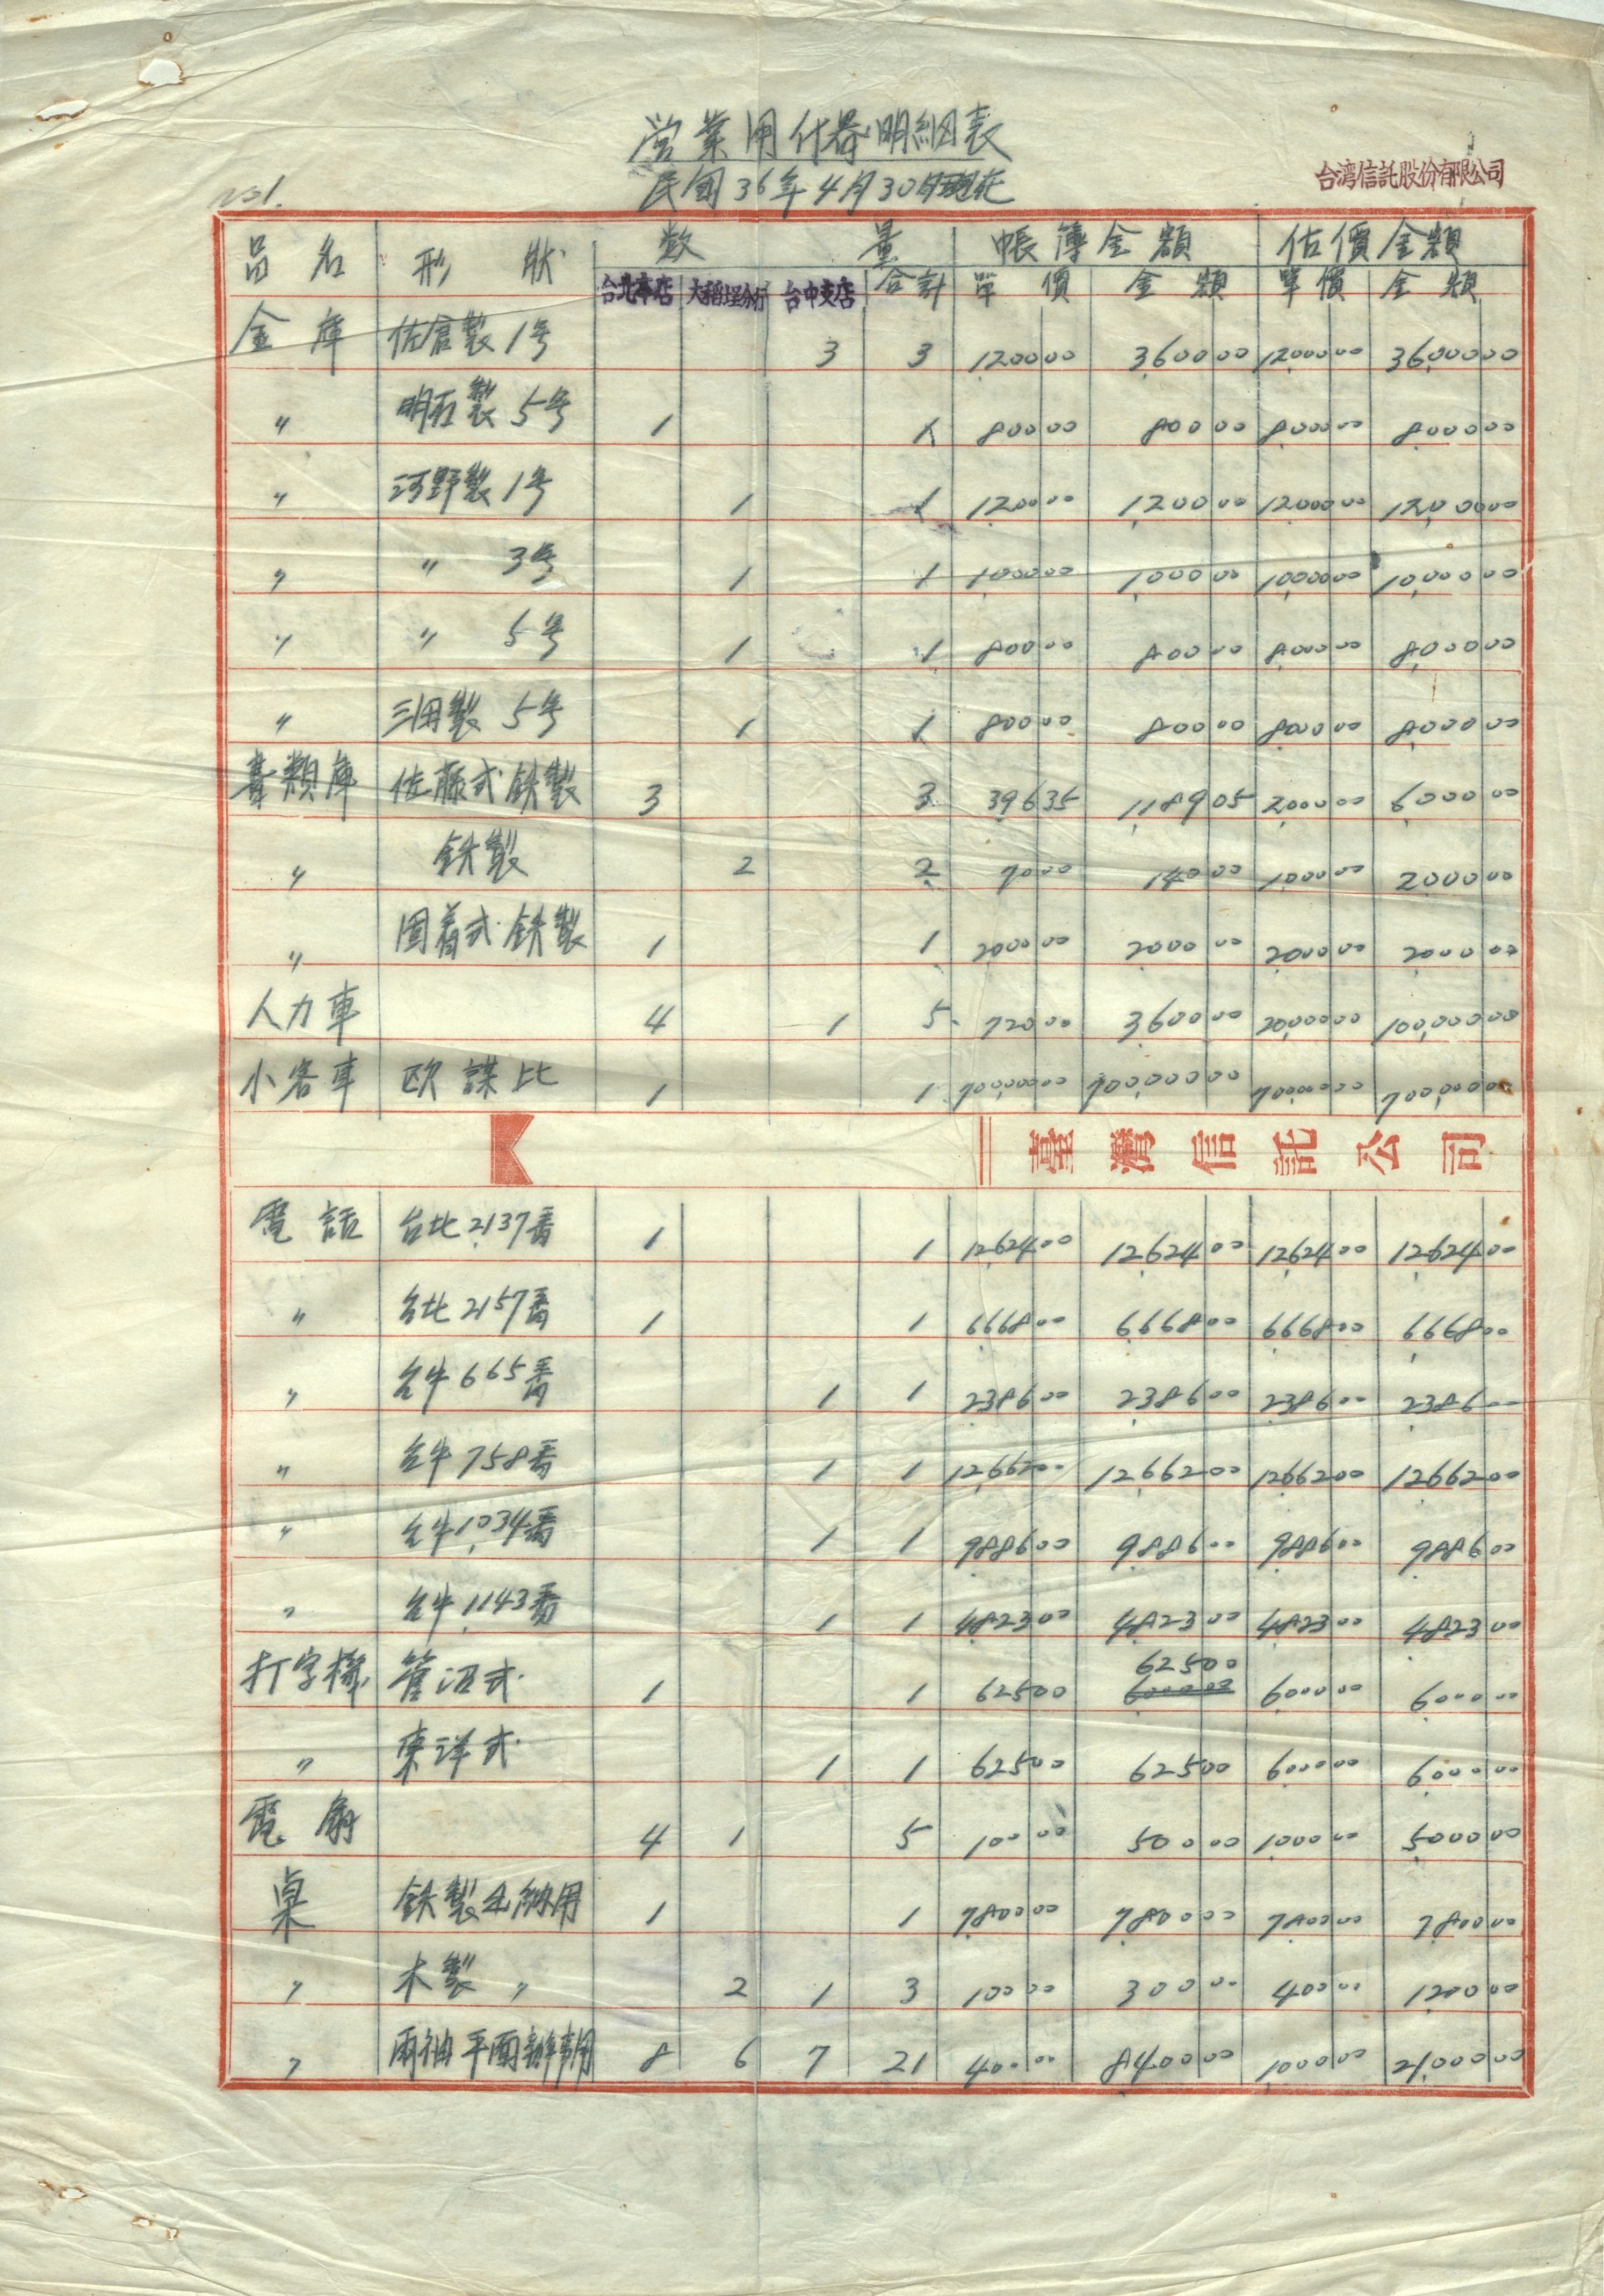 営業用什器明細表
民國36年4月30日現在
No1.
台湾信託股份有限公司
品名 形狀 数量 帳簿金額 估價金額
台北本店 大稻埕分行 台中支店 合計 單價 金額 單價 金額
金庫 佐倉製1号 3 3 1,200 00 3,600 00 12,000 00 36,000 00
〃 明石製5号 1 1 800 00 800 00 8,000 00 8,000 00
〃 河野製1号 1 1 1,200 00 1,200 00 12,000 00 12,000 00
〃 〃 3号 1 1 1,000 00 1,000 00 10,000 00 10,000 00
〃 〃 5号 1 1 800 00 800 00 8,000 00 8,000 00
〃 三田製5号 1 1 800 00 800 00 8,000 00 8,000 00
書類庫 佐藤式鉄製 3 3 396 35 1,189 05 2,000 00 6,000 00
〃 鉄製 2 2 70 00 140 00 1,000 00 2,000 00
〃 固着式鉄製 1 1 2,000 00 2,000 00 2,000 00 2,000 00
人力車 4 1 5 720 00 3,600 00 20,000 00 100,000 00
小客車 欧謀比 1 1 700,000 00 700,000 00 700,000 00 700,000 00
臺灣信託公司
電話 台北2,137番 1 1 12,624 00 12,624 00 12,624 00 12,624 00
〃 台北2157番 1 1 6,668 00 6,668 00 6,668 00 6,668 00
〃 台中665番 1 1 2,386 00 2,386 00 2,386 00 2,386 00
〃 台中758番 1 1 12,662 00 12,662 00 12,662 00 12,662 00
〃 台中1,034番 1 1 9,886 00 9,886 00 9,886 00 9,886 00
〃 台中1,143番 1 1 4,823 00 4,823 00 4,823 00 4,823 00
625 00
打字機 管沼式 1 1 625 00 6,000 00 6,000 00 6,000 00
〃 東洋式 1 1 625 00 625 00 6,000 00 6,000 00
電扇 4 1 5 100 00 500 00 1,000 00 5,000 00
桌 鉄製出納用 1 1 7,800 00 7,800 00 7,800 00 7,800 00
〃 木製 〃 2 1 3 100 00 300 00 400 00 1,200 00
〃 兩袖平面辦事用 8 6 7 21 400 00 8,400 00 1,000 00 21,000 00